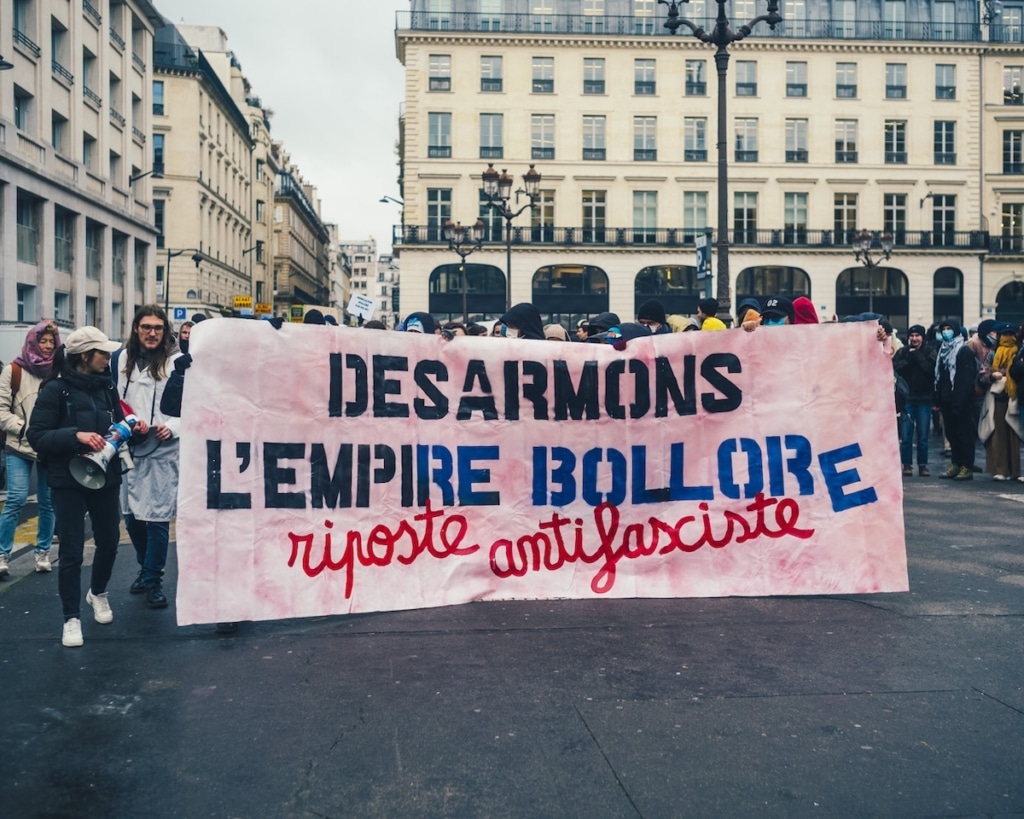 DESARMONS
L'EMPIRE BOLLORE
riposte antifasciste
02